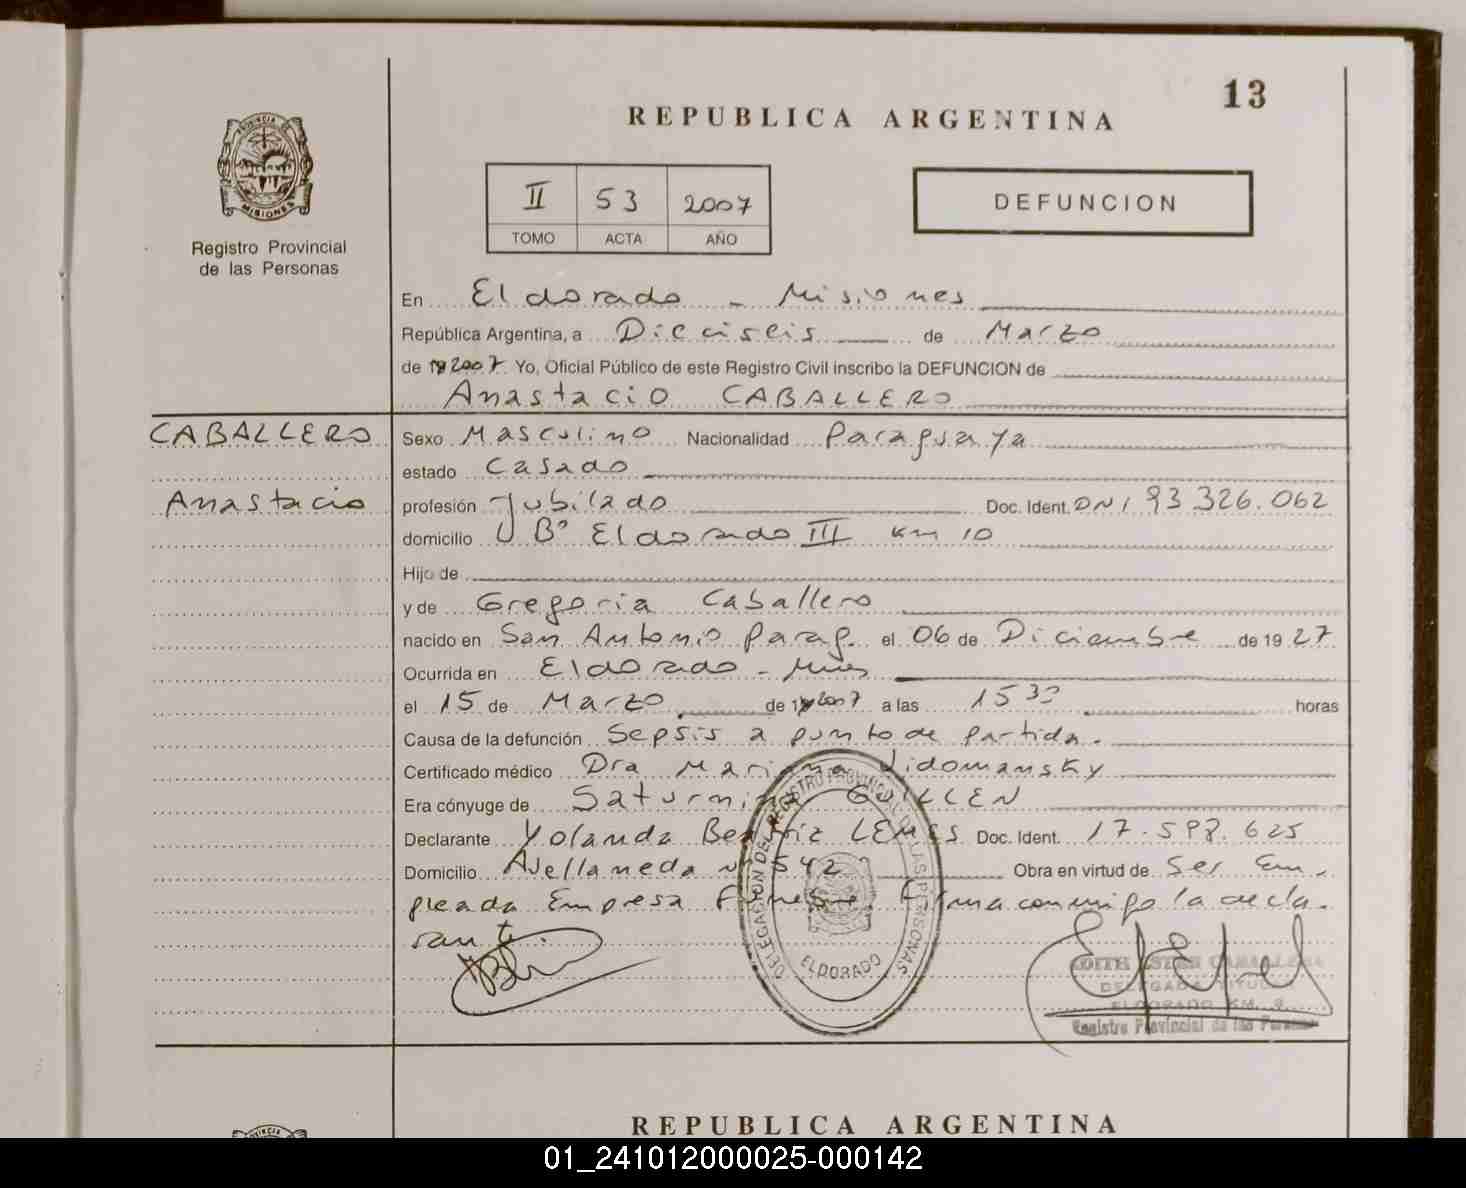 13
REPUBLICA ARGENTINA
PROVINCIA DE
MISIONES
Registro Provincial
de las Personas
II 53 2007
TOMO ACTA AÑO
DEFUNCION
En Eldorado - Misiones
República Argentina, a Dieciseis de Marzo
de 19 2007. Yo, Oficial Público de este Registro Civil inscribo la DEFUNCION de
Anastacio CABALLERO
CABALLERO
Anastacio
Sexo Masculino Nacionalidad Paraguaya
estado Casado
profesión Jubilado Doc. Ident. DNI 93.326.062
domicilio Bº Eldorado III Km 10
Hijo de
y de Gregoria Caballero
nacido en San Antonio Parag. el 06 de Diciembre de 19 27
Ocurrida en Eldorado - Mnes
el 15 de Marzo de 19 2007 a las 15 30 horas
Causa de la defunción Sepsis a punto de partida.
Certificado médico Dra Mariana Vidomansky
Era cónyuge de Saturnina GUILLEN
Declarante Yolanda Beatriz LEMES Doc. Ident. 17.598.625
Domicilio Avellaneda Nº 542 Obra en virtud de Ser Em.
pleada Empresa Funebre. Firma conmigo la decla.
rante.
DELEGACION DEL REGISTRO PROVINCIAL DE LAS PERSONAS
ELDORADO
EDITH ESTER CABALLERO
DELEGADA TITULAR
ELDORADO KM. 9
Registro Provincial de las Personas
REPUBLICA ARGENTINA
01_241012000025-000142